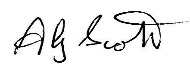 Aly Scott